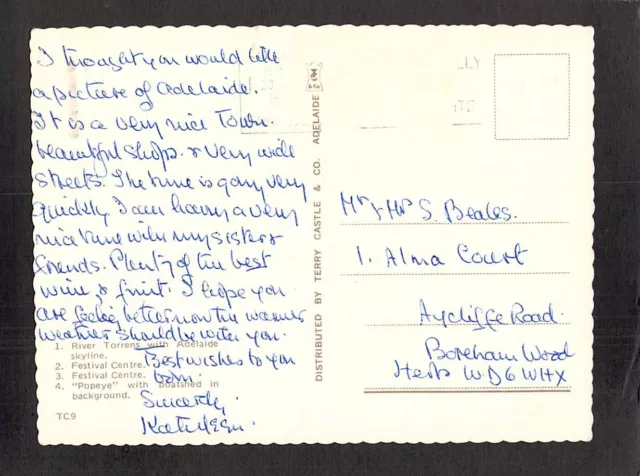 I thought you would like
a picture of Adelaide.
It is a very nice Town.
beautiful shops. & very wide
streets. The time is going very
quickly I am having a very
nice time with my sister &
friends. Plenty of the best
wine & fruit. I hope you
are feeling better now the warmer
weather should be with you.
Best wishes to you
both.
Sincerely,
Kathleen.
1. River Torrens with Adelaide
skyline.
2. Festival Centre.
3. Festival Centre.
4. "Popeye" with boatshed in
background.
TC9
DISTRIBUTED BY TERRY CASTLE & CO. ADELAIDE
Mr & Mrs S. Beales.
1. Alma Court
Aycliffe Road.
Boreham Wood
Herts WD6 WHX